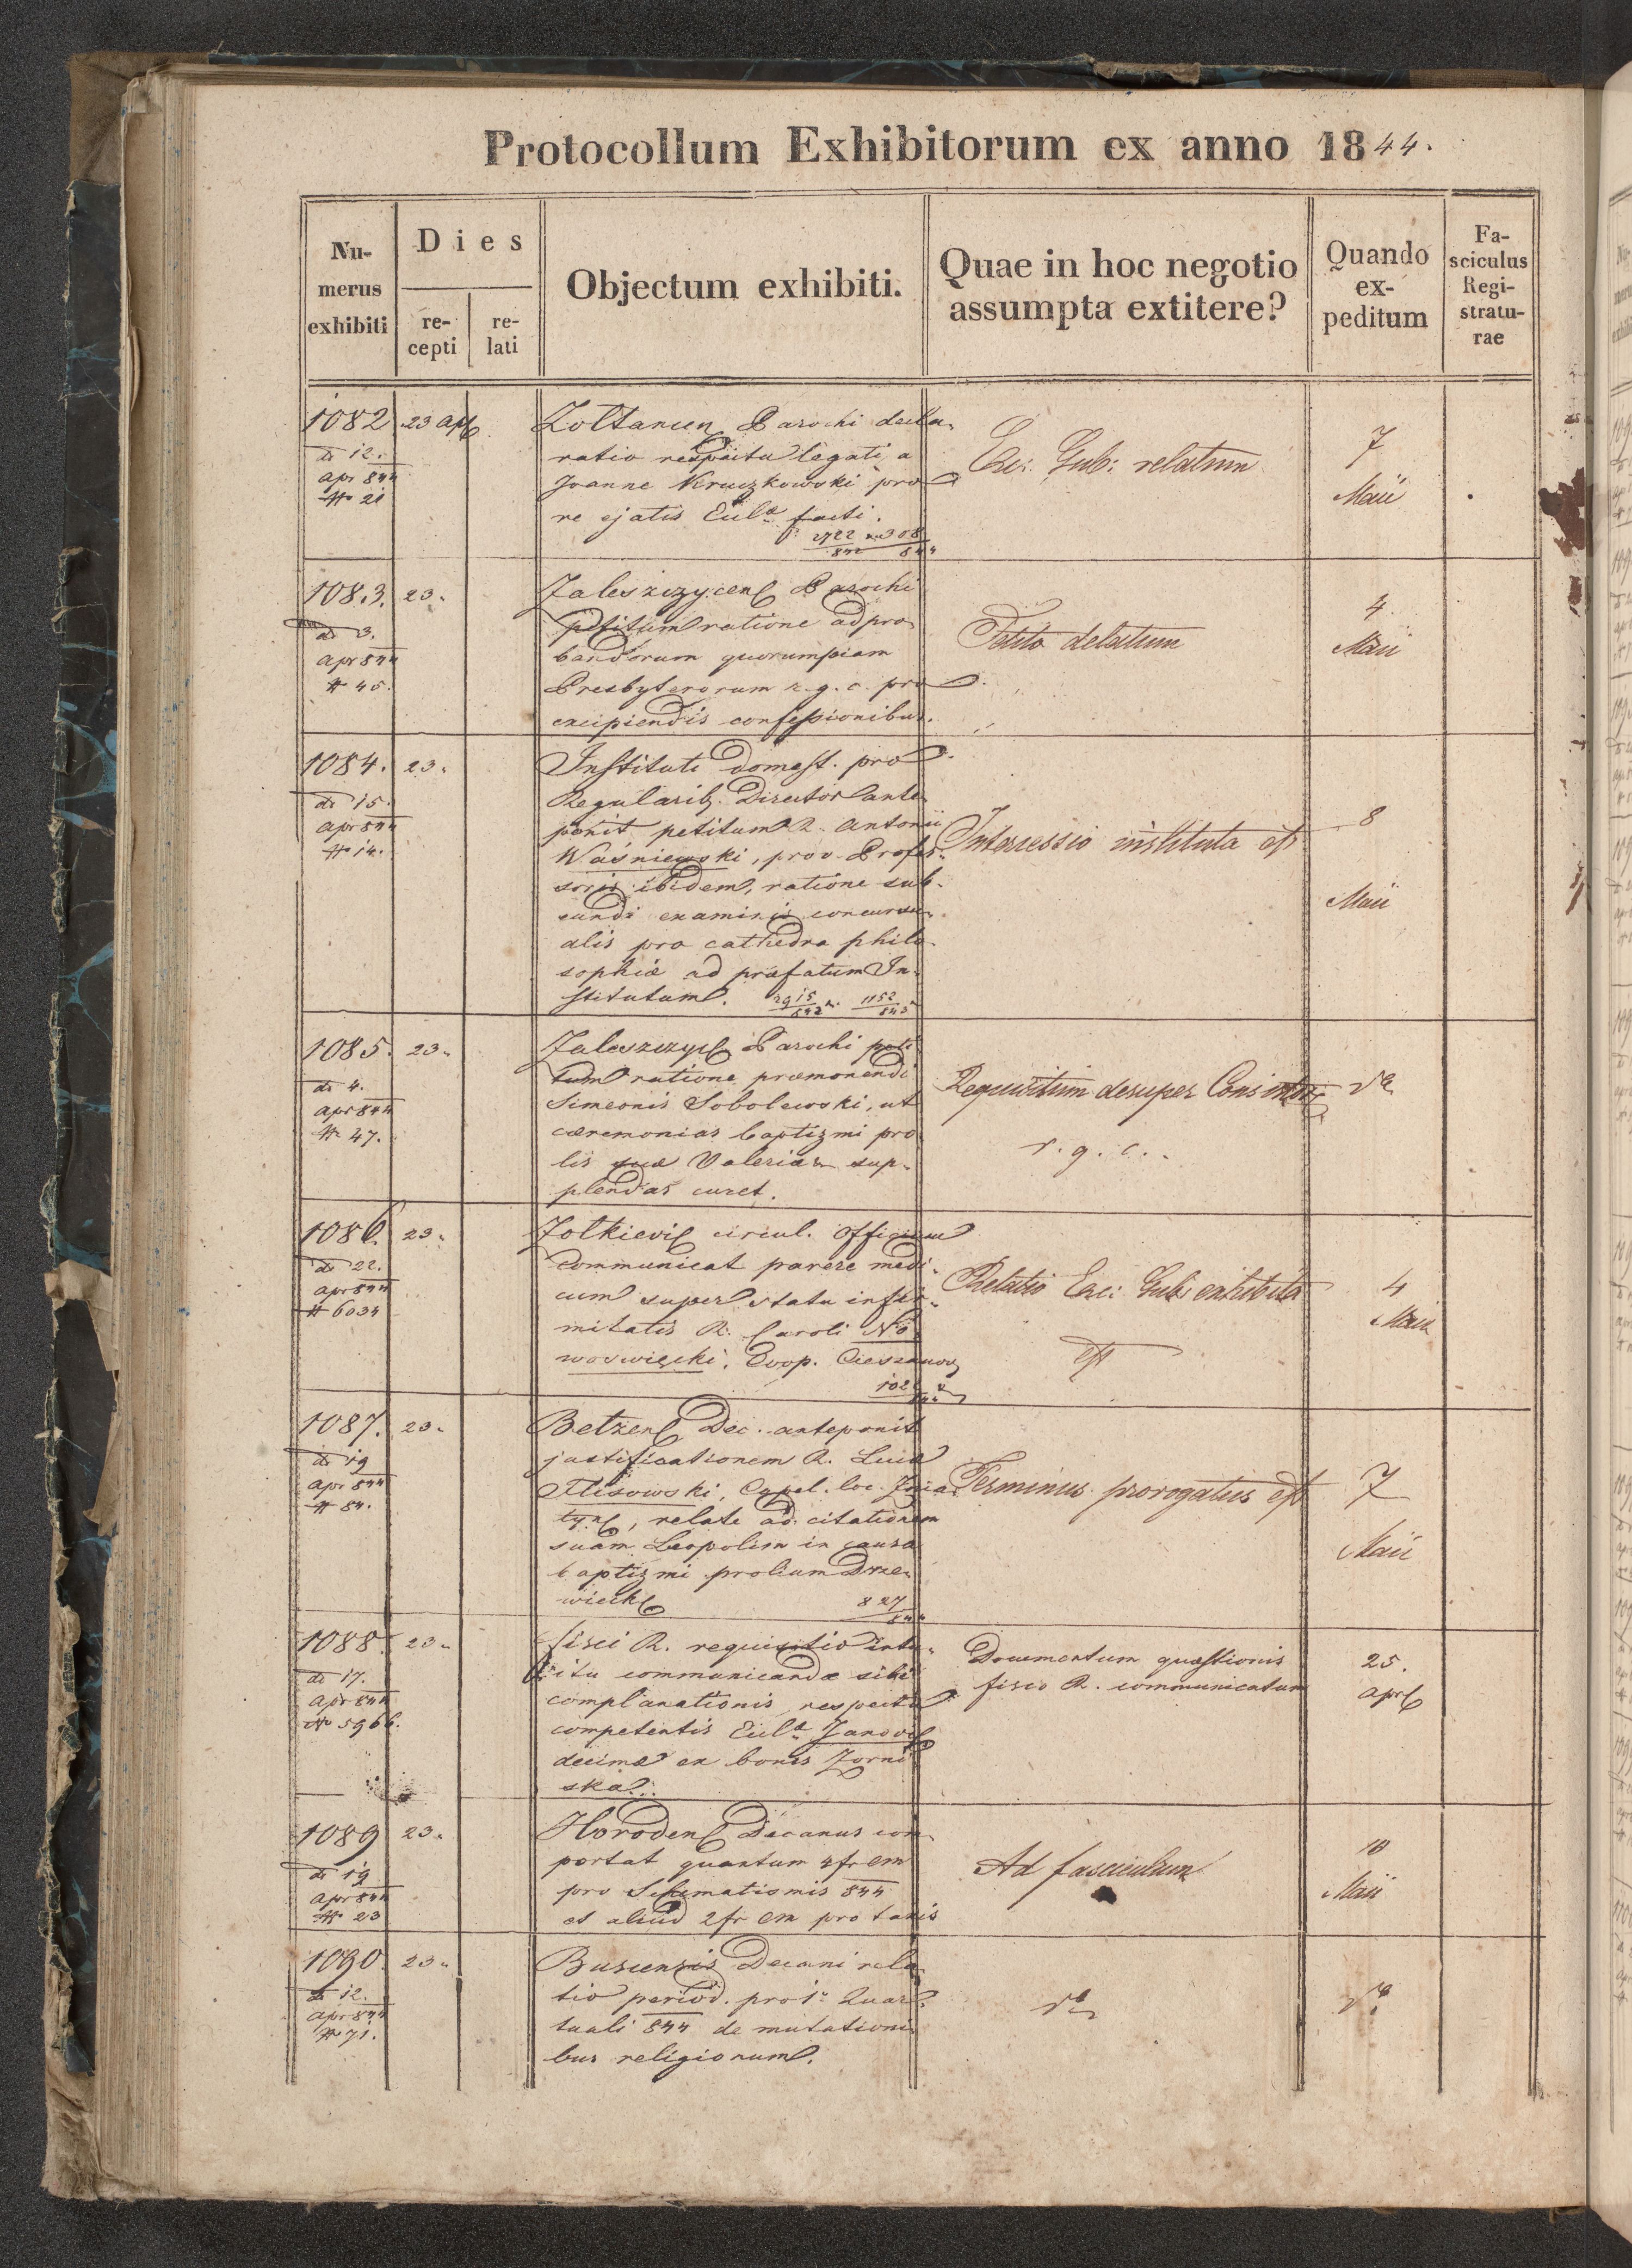 Protocollum Exhibitorum ex anno 1844.
Nu-
merus
exhibiti
Dies
re-
cepti
re-
lati
Objectum exhibiti.
Quae in hoc negotio
assumpta extitere?
Quando
ex-
peditum
Fa-
sciculus
Regi-
stratu-
rae
1082
dto 12.
apr 844
No 21
23 apr
Zoltancen Parochi decla-
ratio respectu legati a
Joanne Kruczkowski pro
re ejatis Eulae facti.
2722 308
842 844
Exc: Gub: relatum
7
Maii
1083.
dto 3.
apr 844
No 45.
23.
Zaleszczycens Parochi
petitum ratione adpro-
bandorum quorumpiam
Presbyterorum r. g. c. pro
excipiendis confessionibus.
Petito delatum
4
Maii
1084.
dto 15.
apr 844
No 14.
23.
Instituti domest. pro
Regularib. Director ante-
ponit petitum R. Antonii
Waśniewski, prov. Profes-
soris ibidem, ratione sub-
eundi examinis concursu-
alis pro cathedra philo-
sophiæ ad præfatum In-
stitutum. 2915 1152
842 843
Intercessio instituta est
8
Maii
1085.
dto 4.
apr 844
No 47.
23.
Zaleszczyc Parochi peti-
tum ratione præmonendi
Simeonis Sobolewski, ut
cæremonias baptizmi pro-
lis suæ Valeriæ sup-
plendas curet.
Requisitum desuper
r. g. c.
1086.
dto 22.
apr 844
No 6034
23.
Zolkievi circul. officium
communicat parere medi-
cum super statu infir-
mitatis R. Caroli No-
wowiecki, Coop. Cieszanov
Relatio Exc: Gub: exhibita
est
4
Maii
1087.
dto 19
apr 844
No 84.
23.
Betzens Dec. anteponit
justificationem R. Luca
Flisowski, Capel. loc.
relate ad citationem
suam Leopolim in causa
baptizmi prolium Drze-
wiecki 827
844
Terminus prorogatus est
7
Maii
1088.
dto 17.
apr 844
No 5966.
23.
fisci R. requisitio intu-
itu communicandæ sibi
complanationis respectu
competentis Eulae Janovi
decimæ ex bonis Zorni-
ska.
Documentum quæstionis
fisco R. communicatum
25.
apr
1089
dto 19
apr 844
No 23
23.
Horodens Decanus com-
portat quantum 4 fr Cm
pro Schematismis 844
et aliud 2 fr Cm pro taxis
Ad fasciculum
10
Maii
1090.
dto 12.
apr 844
No 71.
23.
Buscensis Decani rela-
tio period. pro 1o Quar-
tuali 844 de mutationi-
bus religionum.